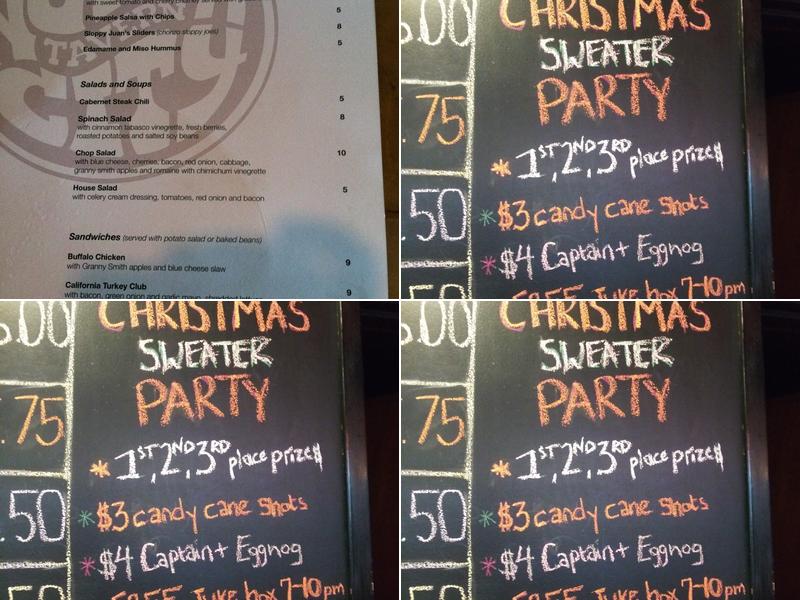 with sweet tomato and cherry chutney served with
5
Pineapple Salsa with Chips
8
Sloppy Juan's Sliders (chorizo sloppy joes)
5
Edamame and Miso Hummus
TAVERN
City
Salads and Soups
Cabernet Steak Chili 5
Spinach Salad 8
with cinnamon tabasco vinegrette, fresh berries,
roasted potatoes and salted soy beans
Chop Salad 10
with blue cheese, cherries, bacon, red onion, cabbage,
granny smith apples and romaine with chimichurri vinegrette
House Salad 5
with celery cream dressing, tomatoes, red onion and bacon
Sandwiches (served with potato salad or baked beans)
Buffalo Chicken 9
with Granny Smith apples and blue cheese slaw
California Turkey Club 9
with bacon, green onion and garlic mayo, shredded
.00
.75
.50
CHRISTMAS
SWEATER
PARTY
* 1ST, 2ND, 3RD place prize$
* $3 candy cane shots
* $4 Captain + Eggnog
FREE Juke box 7-10pm
.00
.75
.50
.50
CHRISTMAS
SWEATER
PARTY
* 1ST, 2ND, 3RD place prize$
* $3 candy cane shots
* $4 Captain + Eggnog
FREE Juke box 7-10pm
.00
.75
.50
.50
CHRISTMAS
SWEATER
PARTY
* 1ST, 2ND, 3RD place prize$
* $3 candy cane shots
* $4 Captain + Eggnog
FREE Juke box 7-10pm